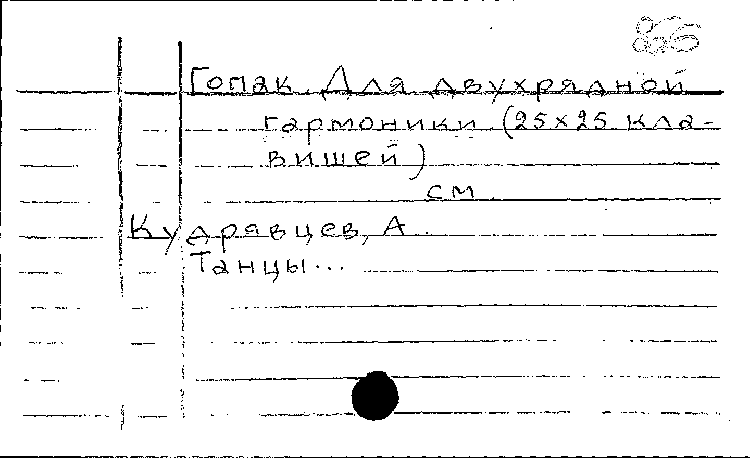 Гопак. Для двухрядной
гармоники (25х25 кла-
вишей)
см
Кудрявцев, А.
Танцы...